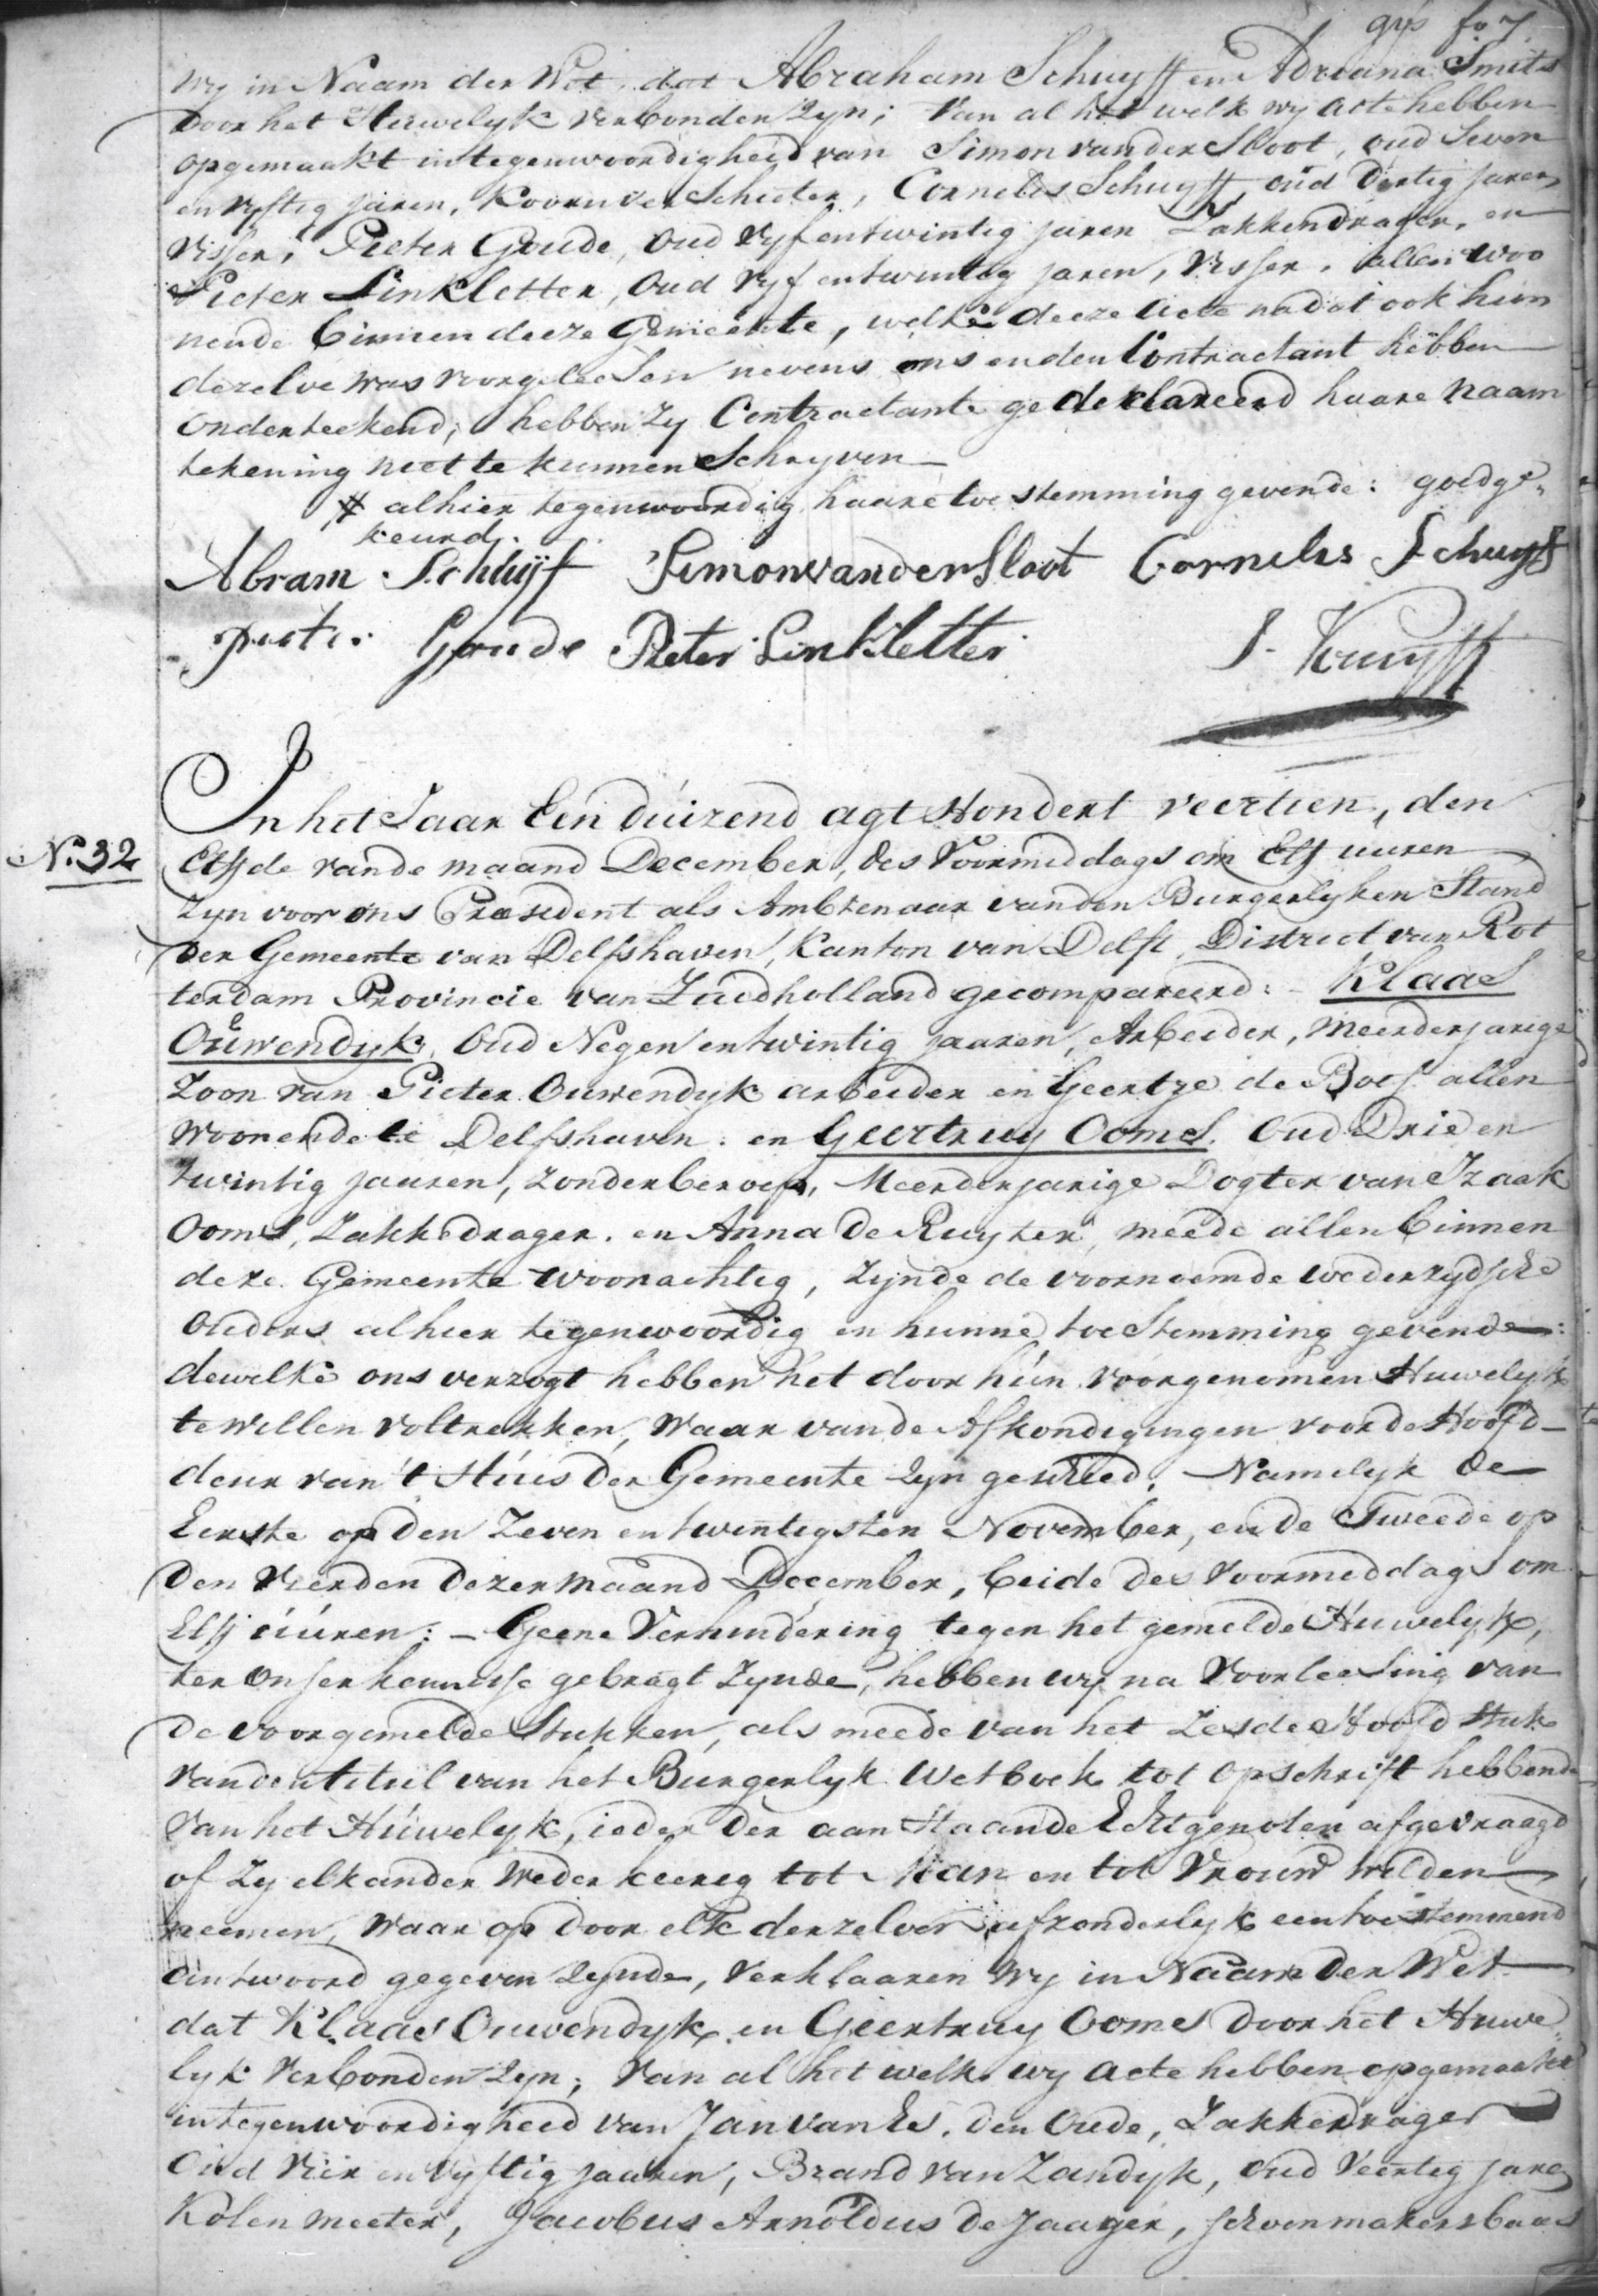 fo 7
wy in Naam der Wet, dat Abraham Schuyff en Adriana Smits
door het Huwelyk verbonden Zyn; Van al het welk wy acte hebben
opgemaakt in tegenwoordigheid van Simon van der Sloot, oud Seven
en vyftig jaren, Koornverschieter, Cornelis Schuyff, oud Dertig jaren
Visser, Pieter Goude, oud Vyf en twintig jaren Zakkendrager, en
Pieter Linkletter, Oud Vyf en twintig jaren, Visser, allen woo
nende binnen deeze Gemeente, welke deeze Acte nadat ook hun
dezelve was voorgeleesen nevens ons en den Contractant hebben
onderteekend; hebben Zy Contractante gedeklareerd haare naam
tekening niet te kunnen Schryven
# alhier tegenwoordig haare toestemming gevende: goedge„
keurd.
Abram Schuÿf Simon van der Sloot Cornelis Schuyf
Goude Pieter Linkletter J. Kruyff
In het Jaar Een duizend agt Hondert veertien, den
No. 32
Elfde van de maand December, des Voormiddags om Elf uuren
Zyn voor ons President als Ambtenaar van den Burgerlyken Stand
der Gemeente van Delfshaven, Kanton van Delft, District van Rot
terdam Provincie van Zuidholland gecompareerd: - Klaas
Ouwendyk, Oud Negen en twintig jaaren, Arbeider, Meerderjarige
Zoon van Pieter Ouwendyk arbeider en Geertze de Boes allen
Woonende te Delfshaven: en Geertruy Ooms. Oud Drie en
twintig jaaren, Zonder beroep, Meerderjarige Dogter van Izaak
Ooms, Zakkedrager. en Anna de Ruyter, meede allen binnen
deze Gemeente woonachtig, Zynde de voornoemde wederzydsche
Ouders alhier tegenwoordig en hunne toestemming gevende:
dewelke ons verzogt hebben het door hun voorgenomen Huwelyk
te willen voltrekken, waar van de Afkondigingen voor de Hoofd-
deur van 't Huis der Gemeente Zyn geschied, Namelyk de
Eerste op den Zeven en twintigsten November, en de Tweede op
den Vierden dezer maand December, beide des Voormiddags om
Elf úúren: - Geene Verhindering tegen het gemelde Huwelyk,
ter onser kennisse gebragt Zynde, hebben wy na Voorleesing van
de voorgemelde Stukken, als meede van het Zesde Hoofd Stuk
van den titul van het Burgerlyk Wetboek tot opschrift hebbende
Van het Huwelyk, ieder der aan Staande Echtgenoten afgevraagd
of Zy elkander Wederkeerig tot Man en tot Vrouw wilden
neemen, waar op door elk derzelver afzonderlyk een toestemmend
antwoord gegeven Zynde, Verklaaren wy in Naam der Wet
dat Klaas Ouwendyk en Geertruy Ooms door het Huwe„
lyk Verbonden Zyn; Van al het welk wy acte hebben opgemaakt
in tegenwoordigheid van Jan van Es, den Oude, Zakkedrager
Oud Vier en vyftig jaaren, Brand van Zandyk, oud Veertig jaren
Kolenmeeter, Jacobus Arnoldus de Jaager, schoenmakersbaas